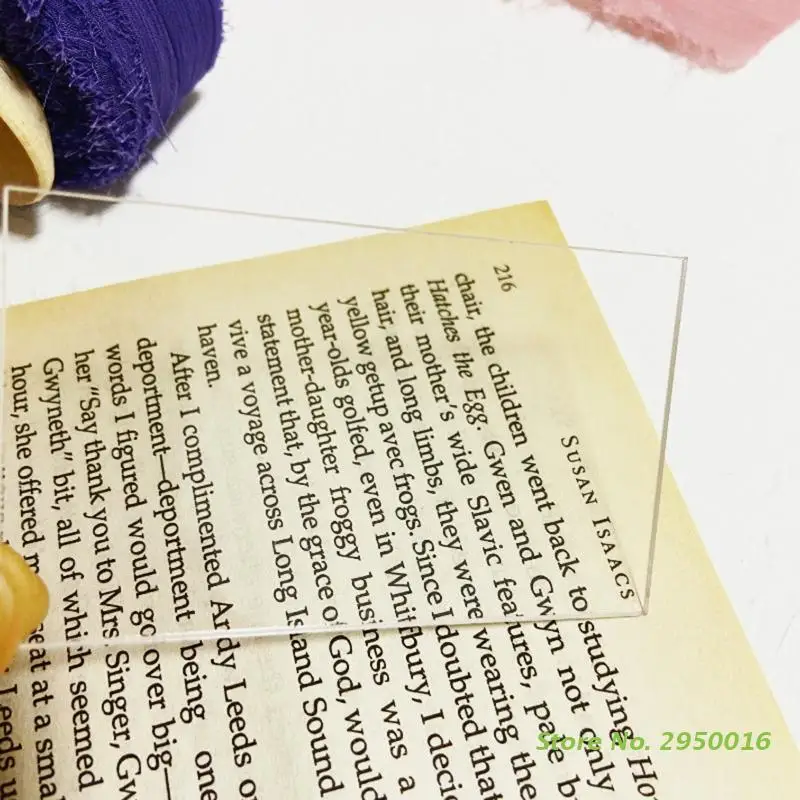 216
SUSAN ISAACS
chair, the children went back to studying Ho
Hatches the Egg. Gwen and Gwyn not only
their mother's wide Slavic features, pale
hair, and long limbs, they were wearing the
yellow getup avec frogs. Since I doubted that
year-olds golfed, even in Whitfbury, I deci
mother-daughter froggy business was a
statement that, by the grace of God, would
vive a voyage across Long Island Sound
haven.
After I complimented Ardy Leeds o
deportment—deportment being one
words I figured would go over big—
her "Say thank you to Mrs. Singer, Gw
Gwyneth" bit, all of which seemed
hour, she offered m eat at a smal
Leeds u
Store No. 2950016